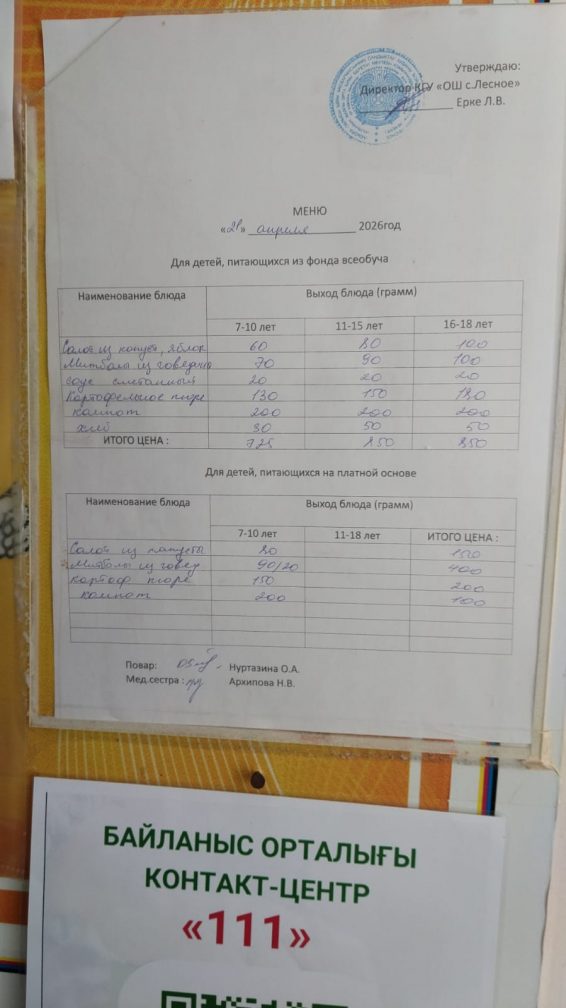 Утверждаю:
Директор КГУ «ОШ с.Лесное»
Ерке Л.В.
МЕНЮ
«21» апреля 2026год
Для детей, питающихся из фонда всеобуча
Наименование блюда Выход блюда (грамм)
7-10 лет 11-15 лет 16-18 лет
Салат из капуст, яблок 60 80 100
Митболы из говядины 70 90 100
соус сметанный 20 20 20
Картофельное пюре 130 150 180
компот 200 200 200
хлеб 30 50 50
ИТОГО ЦЕНА : 725 850 850
Для детей, питающихся на платной основе
Наименование блюда Выход блюда (грамм)
7-10 лет 11-18 лет ИТОГО ЦЕНА :
Салат из капусты 80
Митболы из говяд 90/20 400
Картоф пюре 150 200
компот 200 100
Повар: Нуртазина О.А.
Мед.сестра : Архипова Н.В.
БАЙЛАНЫС ОРТАЛЫҒЫ
КОНТАКТ-ЦЕНТР
«111»